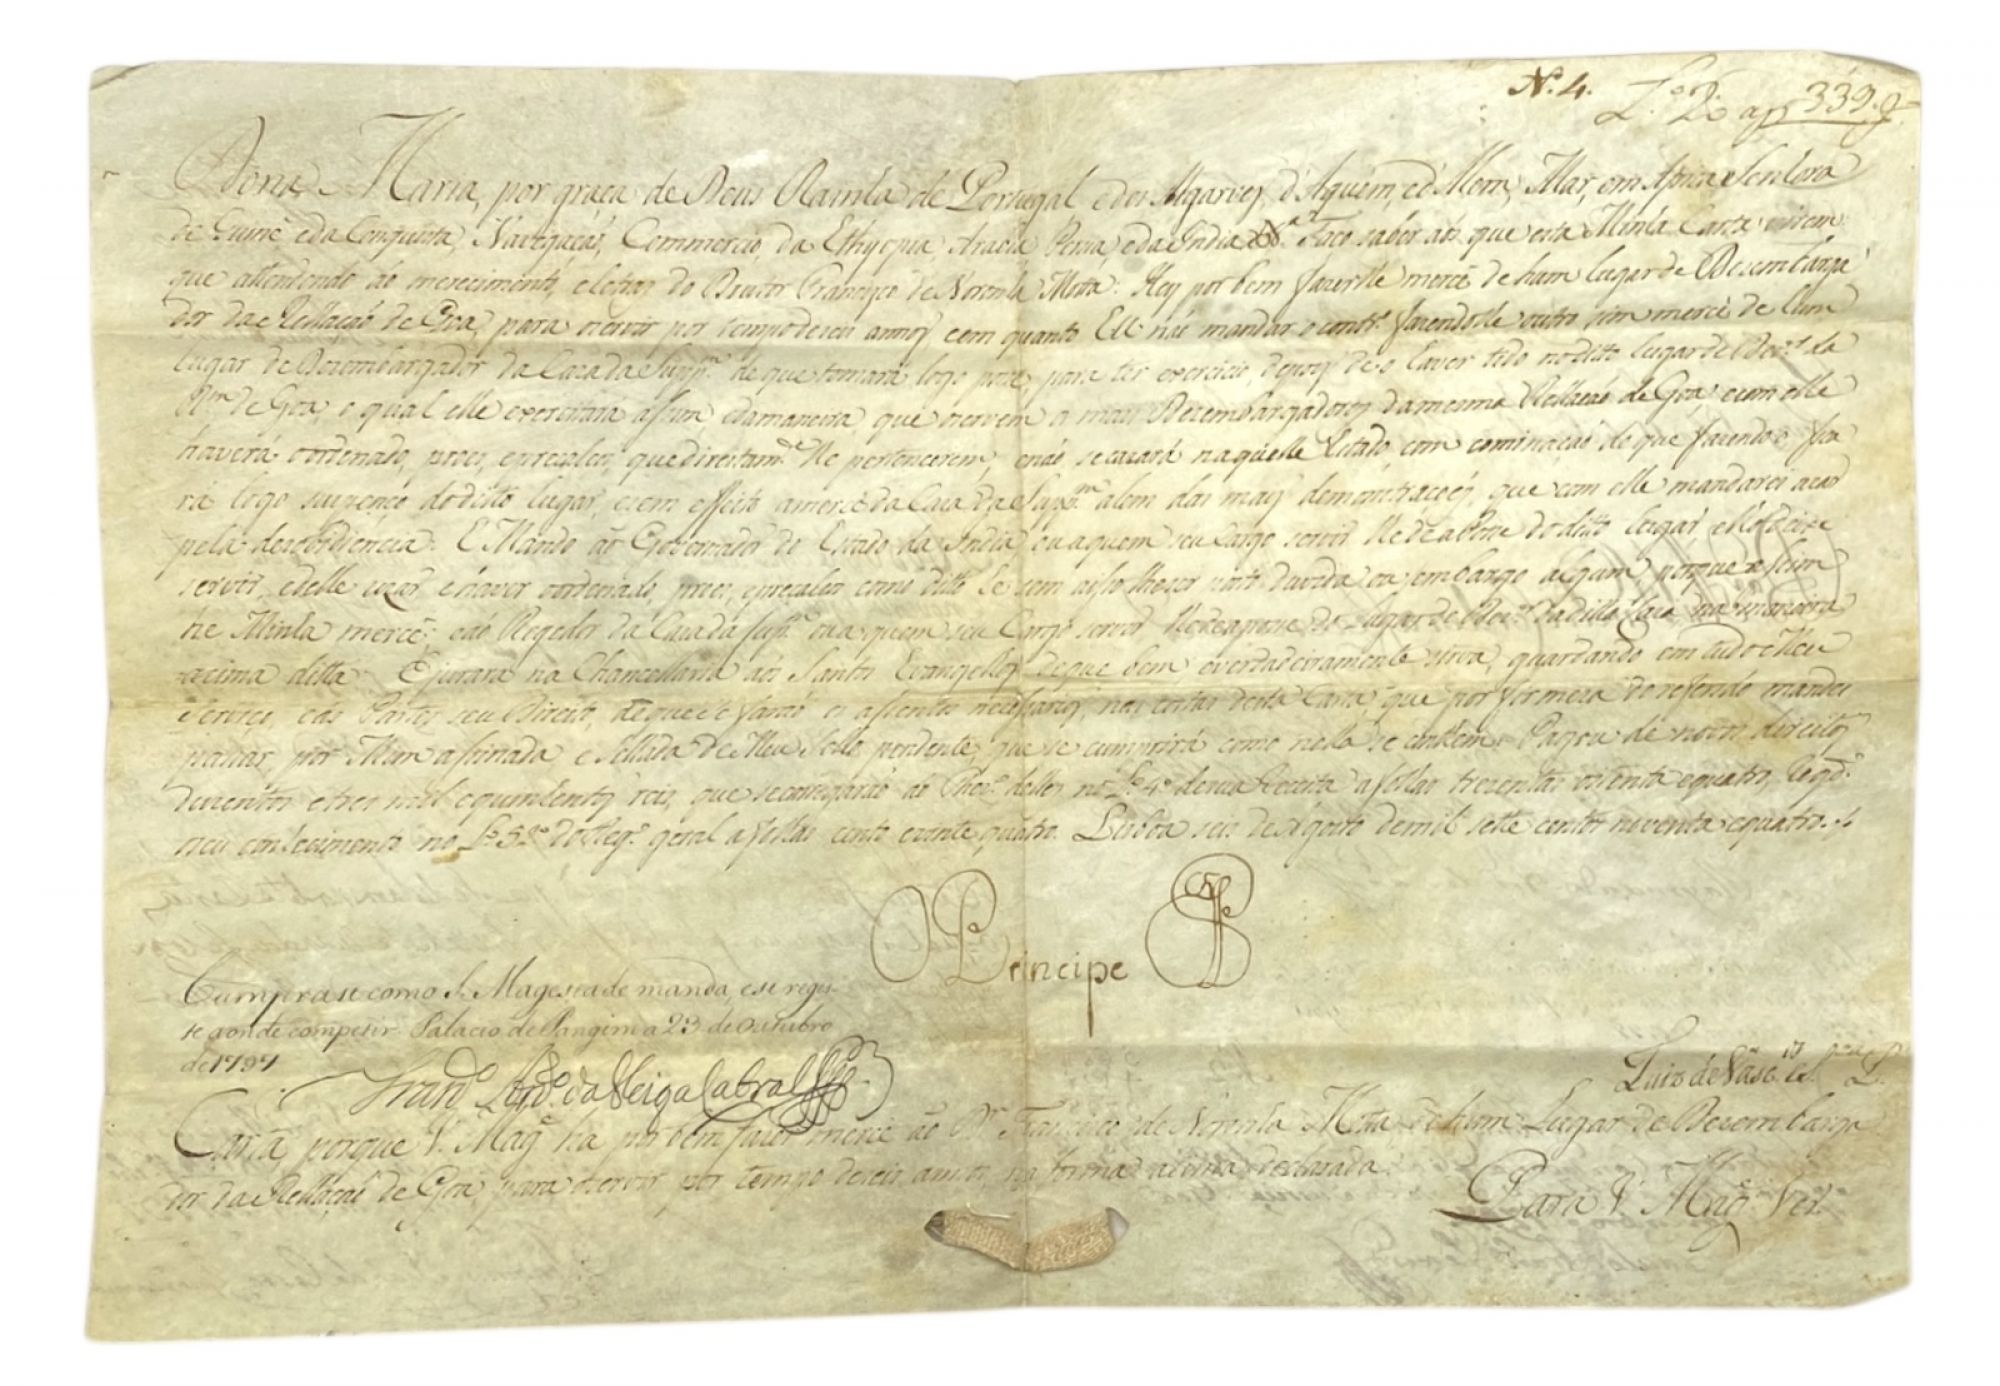 N.º 4.
L.º 2.º ap 339.
Dona Maria, por graça de Deus Rainha de Portugal, e dos Algarves, d'Aquém, e d'Alem, Mar, em Africa Senhora
de Guiné e da Conquista, Navegação, Commercio, da Ethyopia, Arabia Persia, e da India &.ª Faço saber aos que esta Minha Carta virem:
que attendendo ao merecimento, e letras do Doutor Francisco de Noronha Motta: Hey por bem fazerlhe mercê de hum lugar de Dezembarga
dor da Rellação de Goa, para o servir por tempo de seis annos, e em quanto Eu não mandar o contr.º fazendolhe outro sim mercê de hum
Lugar de Dezembargador da Caza da Supp.m de que tomará logo posse, para ter exercicio, depois de o haver tido no ditto lugar de Dez.or da
R.am de Goa, o qual elle exercitará assim, e da maneira, que o servem os mais Dezembargadores da mesma Rellação de Goa e com elle
haverá o ordenado, proes, e precalços, que direitam.te lhe pertencerem, e não se cazará naquelle Estado, com cominação de que fazendo-o, fica
rá logo suspenço do ditto lugar, e sem effeito a mercê da Caza da Supp.m alem das mais demonstrações, que com elle mandarei uzar
pela desobdiencia. E Mando ao Governador do Estado da India, ou a quem seu Cargo servir lhe dê a posse do ditto lugar, e lho deixe
servir, e delle uzar, e haver o ordenado, proes, e precalços como ditto he sem a isso lhe ser posto duvida ou embargo algum, porque assim
he Minha mercê; e ao Regedor da Caza da Supp.m ou a quem seu Cargo servir lhe dê a posse do Lugar de Dez.or da ditta Caza na maneira
acima ditta: E jurará na Chancellaria aos Santos Evangelhos de que bem, e verdadeiramente sirva, guardando em tudo o Meu
Serviço, e ás Partes seu Direito, de que se farão os assentos necessarios, nas costas desta Carta, que por firmeza do referido mandei
passar, por Mim assinada e Sellada de Meu Sello pendente, que se cumprirá como nella se contem. Pagou de novos direitos
duzentos e tres mil e quinhentos reis, que se carregarão ao Thez.º delles no L.º 4.º de sua Receita a folhas trezentas oitenta e quatro, e reg.do
seu conhecimento no L.º 52.º do Reg.º geral a folhas cento e vinte quatro. Lisboa seis de Agosto de mil sette centos noventa e quatro.
O Principe
Cumpra-se como S. Magestade manda, e se regis-
te aonde competir. Palacio de Pangim a 23 de Outubro
de 1797
Fran.do Ant.º da Veiga Cabral
Luiz de Vas.
Carta, porque V. Mag.e ha por bem fazer mercê ao D.r Francisco de Noronha Motta, de hum Lugar de Dezembarga
dor da Rellação de Goa, para o servir por tempo de seis annos, na forma acima declarada.
Para V. Mag.e Ver.